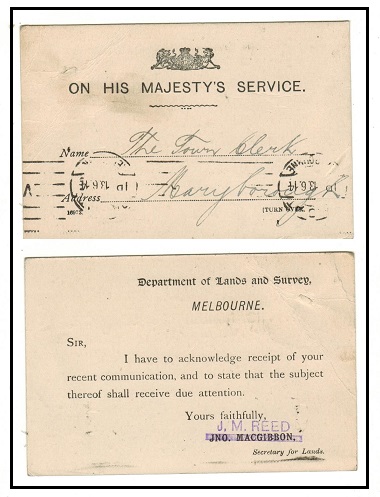 ON HIS MAJESTY'S SERVICE.
Name The Town Clerk
Address Maryborough
(TURN OVER.
Department of Lands and Survey,
MELBOURNE.
SIR,
I have to acknowledge receipt of your
recent communication, and to state that the subject
thereof shall receive due attention.
Yours faithfully,
J. M. REED
JNO. MACGIBBON,
Secretary for Lands.